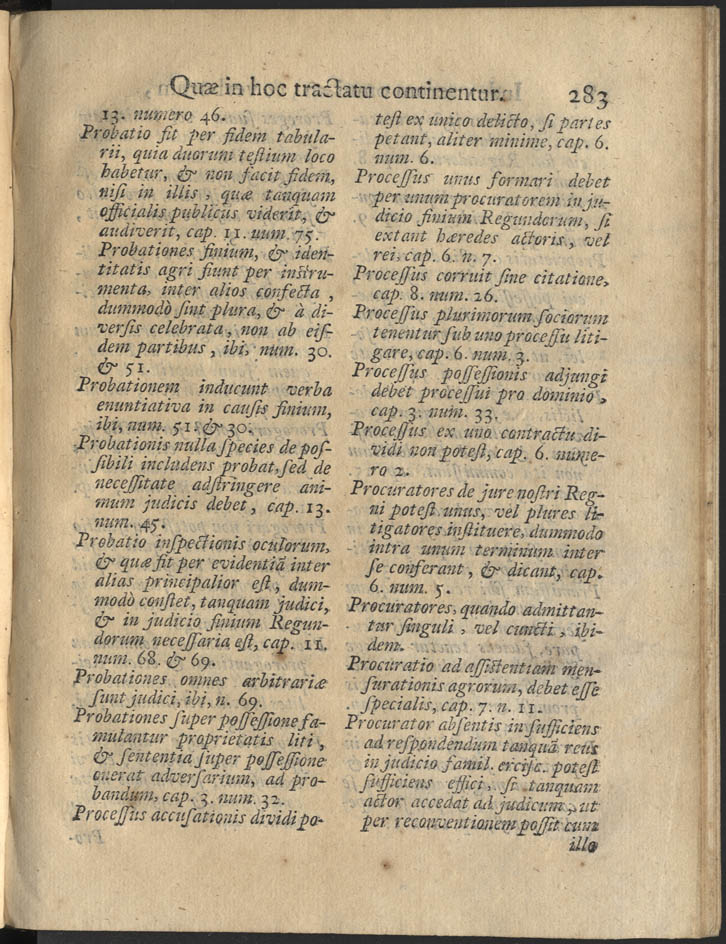 Quæ in hoc tractatu continentur. 283
13. numero 46.
Probatio fit per fidem tabula-
rii, quia duorum teſtium loco
habetur, & non facit fidem,
niſi in illis, quæ tanquam
officialis publicus viderit, &
audiverit, cap. 11. uum. 75.
Probationes finium, & iden-
titatis agri fiunt per inſtru-
menta, inter alios confecta,
dummodò ſint plura, & à di-
verſis celebrata, non ab eiſ-
dem partibus, ibi, num. 30.
& 51.
Probationem inducunt verba
enuntiativa in cauſis finium,
ibi, num. 51. & 30.
Probationis nulla ſpecies de poſ-
ſibili includens probat, ſed de
neceſſitate adſtringere ani-
mum judicis debet, cap. 13.
num. 45.
Probatio inſpectionis oculorum,
& quæ fit per evidentiã inter
alias principalior eſt, dum-
modò conſtet, tanquam judici,
& in judicio finium Regun-
dorum neceſſaria eſt, cap. 11.
num. 68. & 69.
Probationes omnes arbitrariæ
ſunt judici, ibi, n. 69.
Probationes ſuper poſſeſſione fa-
mulantur proprietatis liti,
& ſententia ſuper poſſeſſione
onerat adverſarium, ad pro-
bandum, cap. 3. num. 32.
Proceſſus accuſationis dividi po-
teſt ex unico delicto, ſi partes
petant, aliter minime, cap. 6.
num. 6.
Proceſſus unus formari debet
per unum procuratorem in ju-
dicio finium Regundorum, ſi
extant hæredes actoris, vel
rei, cap. 6. n. 7.
Proceſſus corruit ſine citatione,
cap. 8. num. 26.
Proceſſus plurimorum ſociorum
tenentur ſub uno proceſſu liti-
gare, cap. 6. num. 3.
Proceſſus poſſeſſionis adjungi
debet proceſſui pro dominio,
cap. 3. num. 33.
Proceſſus ex uno contractu di-
vidi non poteſt, cap. 6. nume-
ro 2.
Procuratores de jure noſtri Reg-
ni poteſt unus, vel plures li-
tigatores inſtituere, dummodo
intra unum terminum inter
ſe conferant, & dicant, cap.
6. num. 5.
Procuratores, quando admittan-
tur ſinguli, vel cuncti, ibi-
dem.
Procuratio ad aſſiſtentiam men-
ſurationis agrorum, debet eſſe
ſpecialis, cap. 7. n. 11.
Procurator abſentis inſufficiens
ad reſpondendum tanquã reus
in judicio famil. erciſc. poteſt
ſufficiens effici, ſi tanquam
actor accedat ad judicum, ut
per reconventionem poſſit cum
illo